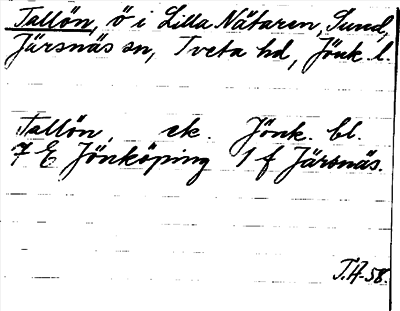 Tallön, ö i Lilla Nätaren, Sund,
Järsnäs sn, Tveta hd, Jönk. l.
Tallön, ek. Jönk. bl.
7 E Jönköping 1 f Järsnäs.
T.A-58.